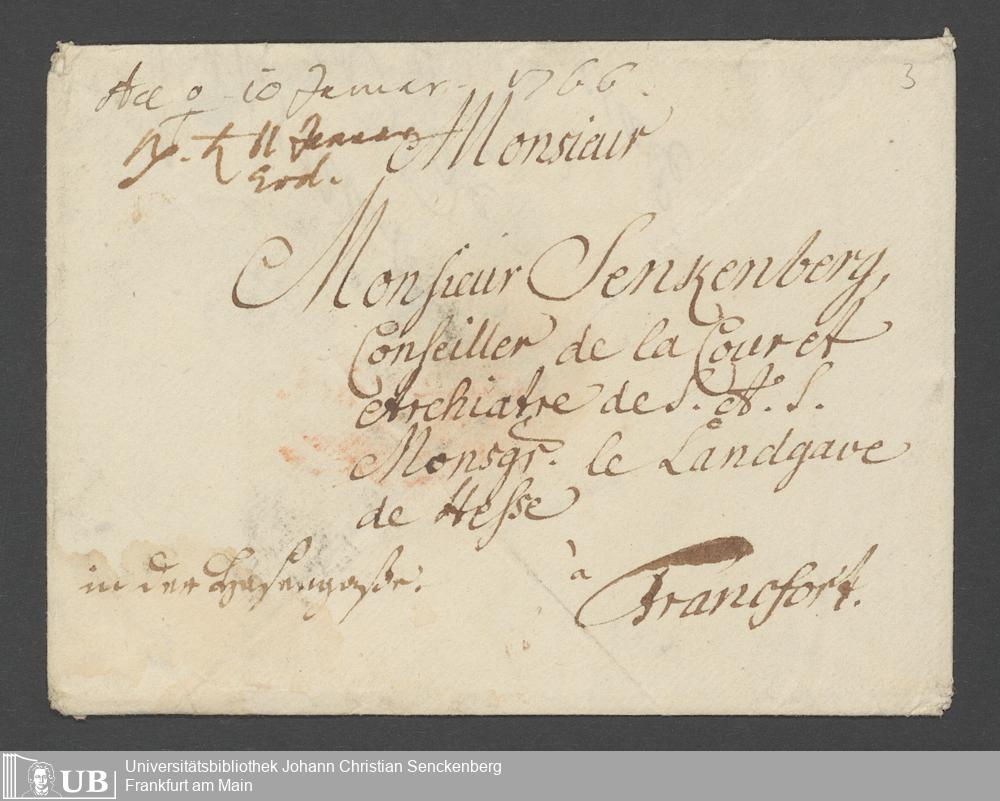 Acc ♀ 10 Januar. 1766.
3
Rp. ♄ 11 Januar
eod.
Monsieur
Monsieur Senkenberg,
Conseiller de la Cour et
Archiatre de S. A. S.
Monsgr. le Landgave
de Hesse
à
Francfort.
in der Hasengaße.
UB
Universitätsbibliothek Johann Christian Senckenberg
Frankfurt am Main